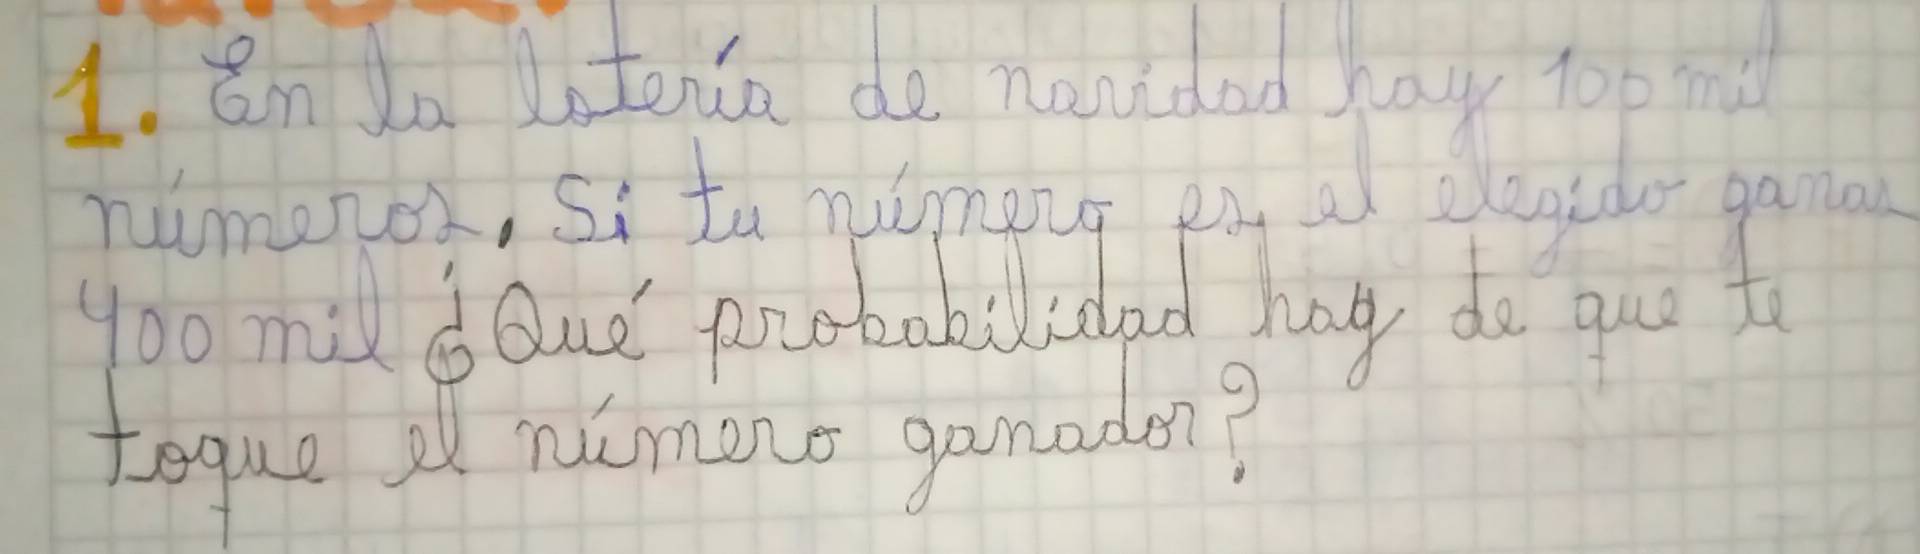 1. En la lotería de navidad hay 100 mil
números. Si tu número es el elegido ganas
400 mil ¿Qué probabilidad hay de que te
toque el número ganador?